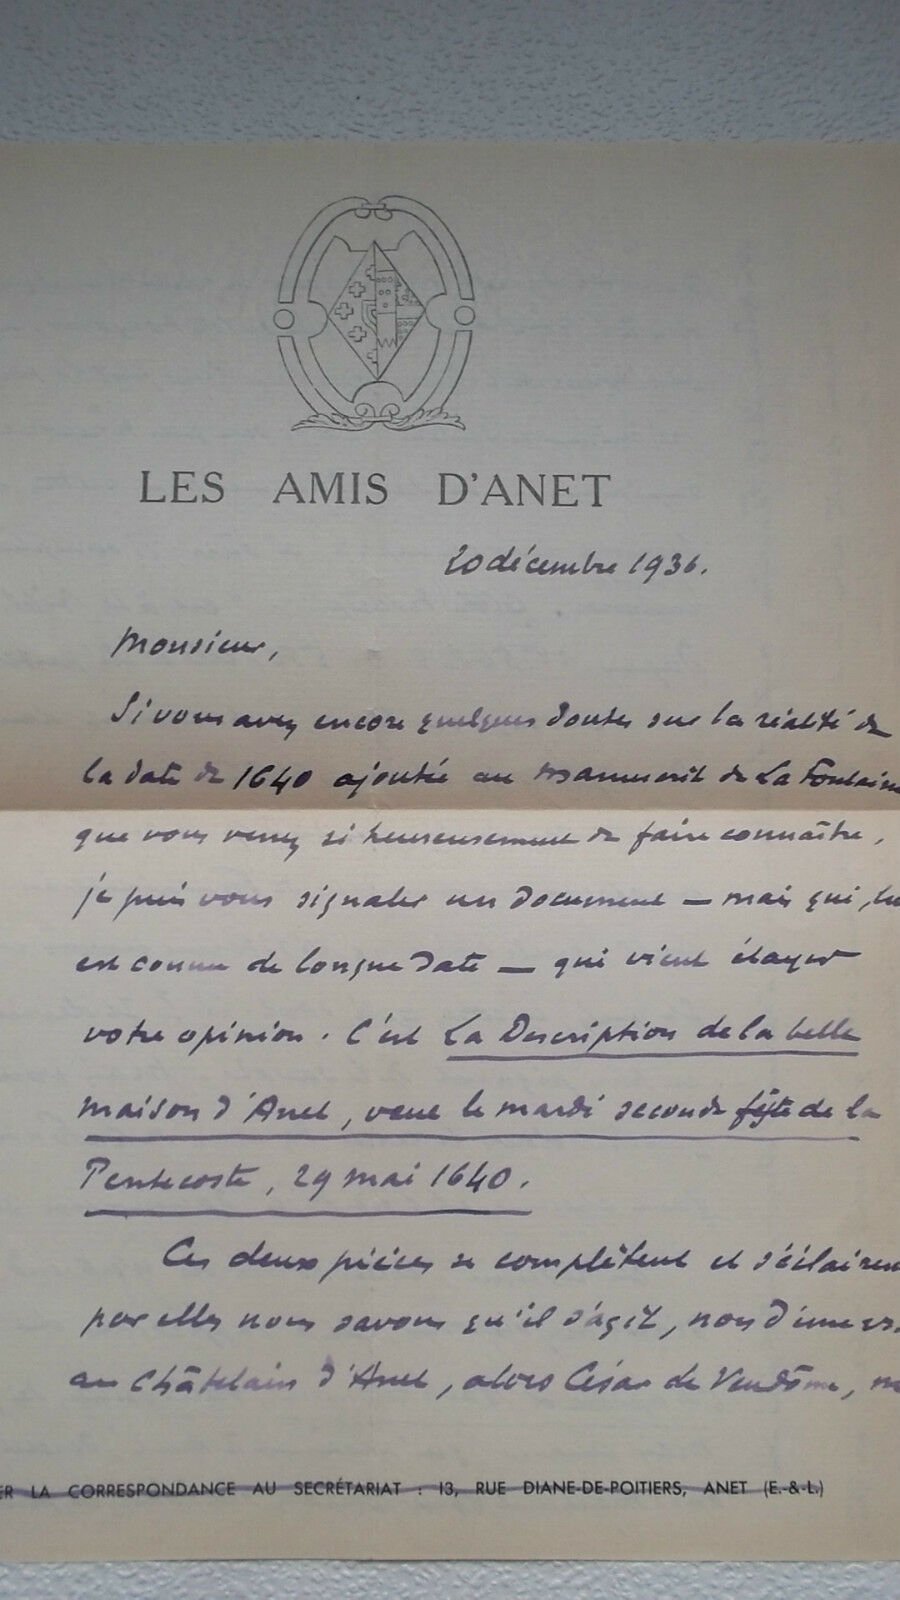 LES AMIS D'ANET
20 décembre 1936.
Monsieur,
Si vous avez encore quelques doutes sur la réalité de
la date de 1640 ajoutée au manuscrit de La Fontaine
que vous venez si heureusement de faire connaître,
je puis vous signaler un document — mais qui, lui
est connu de longue date — qui vient étayer
votre opinion. C'est La Description de la belle
maison d'Anet, veue le mardi seconde fête de la
Pentecoste, 29 mai 1640.
Ces deux pièces se complètent et s'éclairen
par elles nous savons qu'il s'agit, non d'une
au Châtelain d'Anet, alors César de Vendôme,
ER LA CORRESPONDANCE AU SECRÉTARIAT : 13, RUE DIANE-DE-POITIERS, ANET (E.-&-L.)